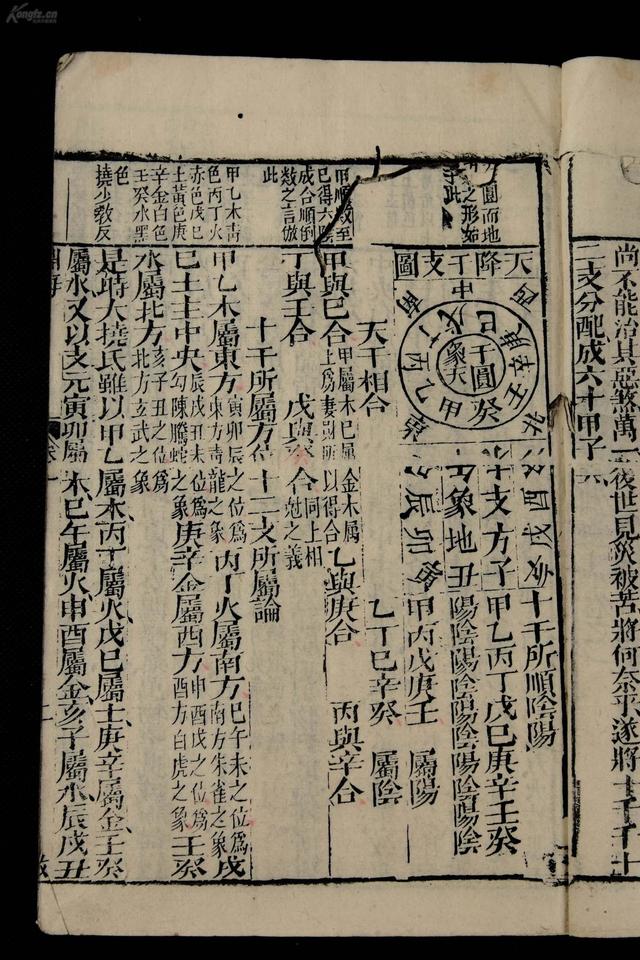 Kongfz.cn
尚不能治其惡煞萬一後世見災被苦將何奈乎遂將十干十
二支分配成六十甲子
圓而地
之形如
此
天降干支圖
干圓象天
十支方
象地
十干所順陰陽
甲乙丙丁戊巳庚辛壬癸
陽陰陽陰陽陰陽陰陽陰
甲丙戊庚壬 屬陽
乙丁巳辛癸 屬陰
甲順數至
巳得六
成合順倒
數之言倣
此
天干相合
甲與巳合 甲屬木巳屬土爲妻財所以得合
乙與庚合
丙與辛合
丁與壬合
戊與癸合 同上相尅之義
十干所屬方位十二支所屬論
甲乙木青
色丙丁火
赤色戊巳
土黃色庚
辛金白色
壬癸水黑
色
撓少敎反
甲乙木屬東方 寅卯辰之位爲東方靑龍之象 丙丁火屬南方 巳午未之位爲南方朱雀之象 戊
巳土主中央 辰戌丑未位爲勾陳螣蛇之象 庚辛金屬西方 申酉戌之位爲酉方白虎之象 壬癸
水屬北方 亥子丑之位爲北方玄武之象
是時大撓氏雖以甲乙屬木丙丁屬火戊巳屬土庚辛屬金壬癸
屬水又以支元寅卯屬木巳午屬火申酉屬金亥子屬水辰戌丑
淵海
卷一
二